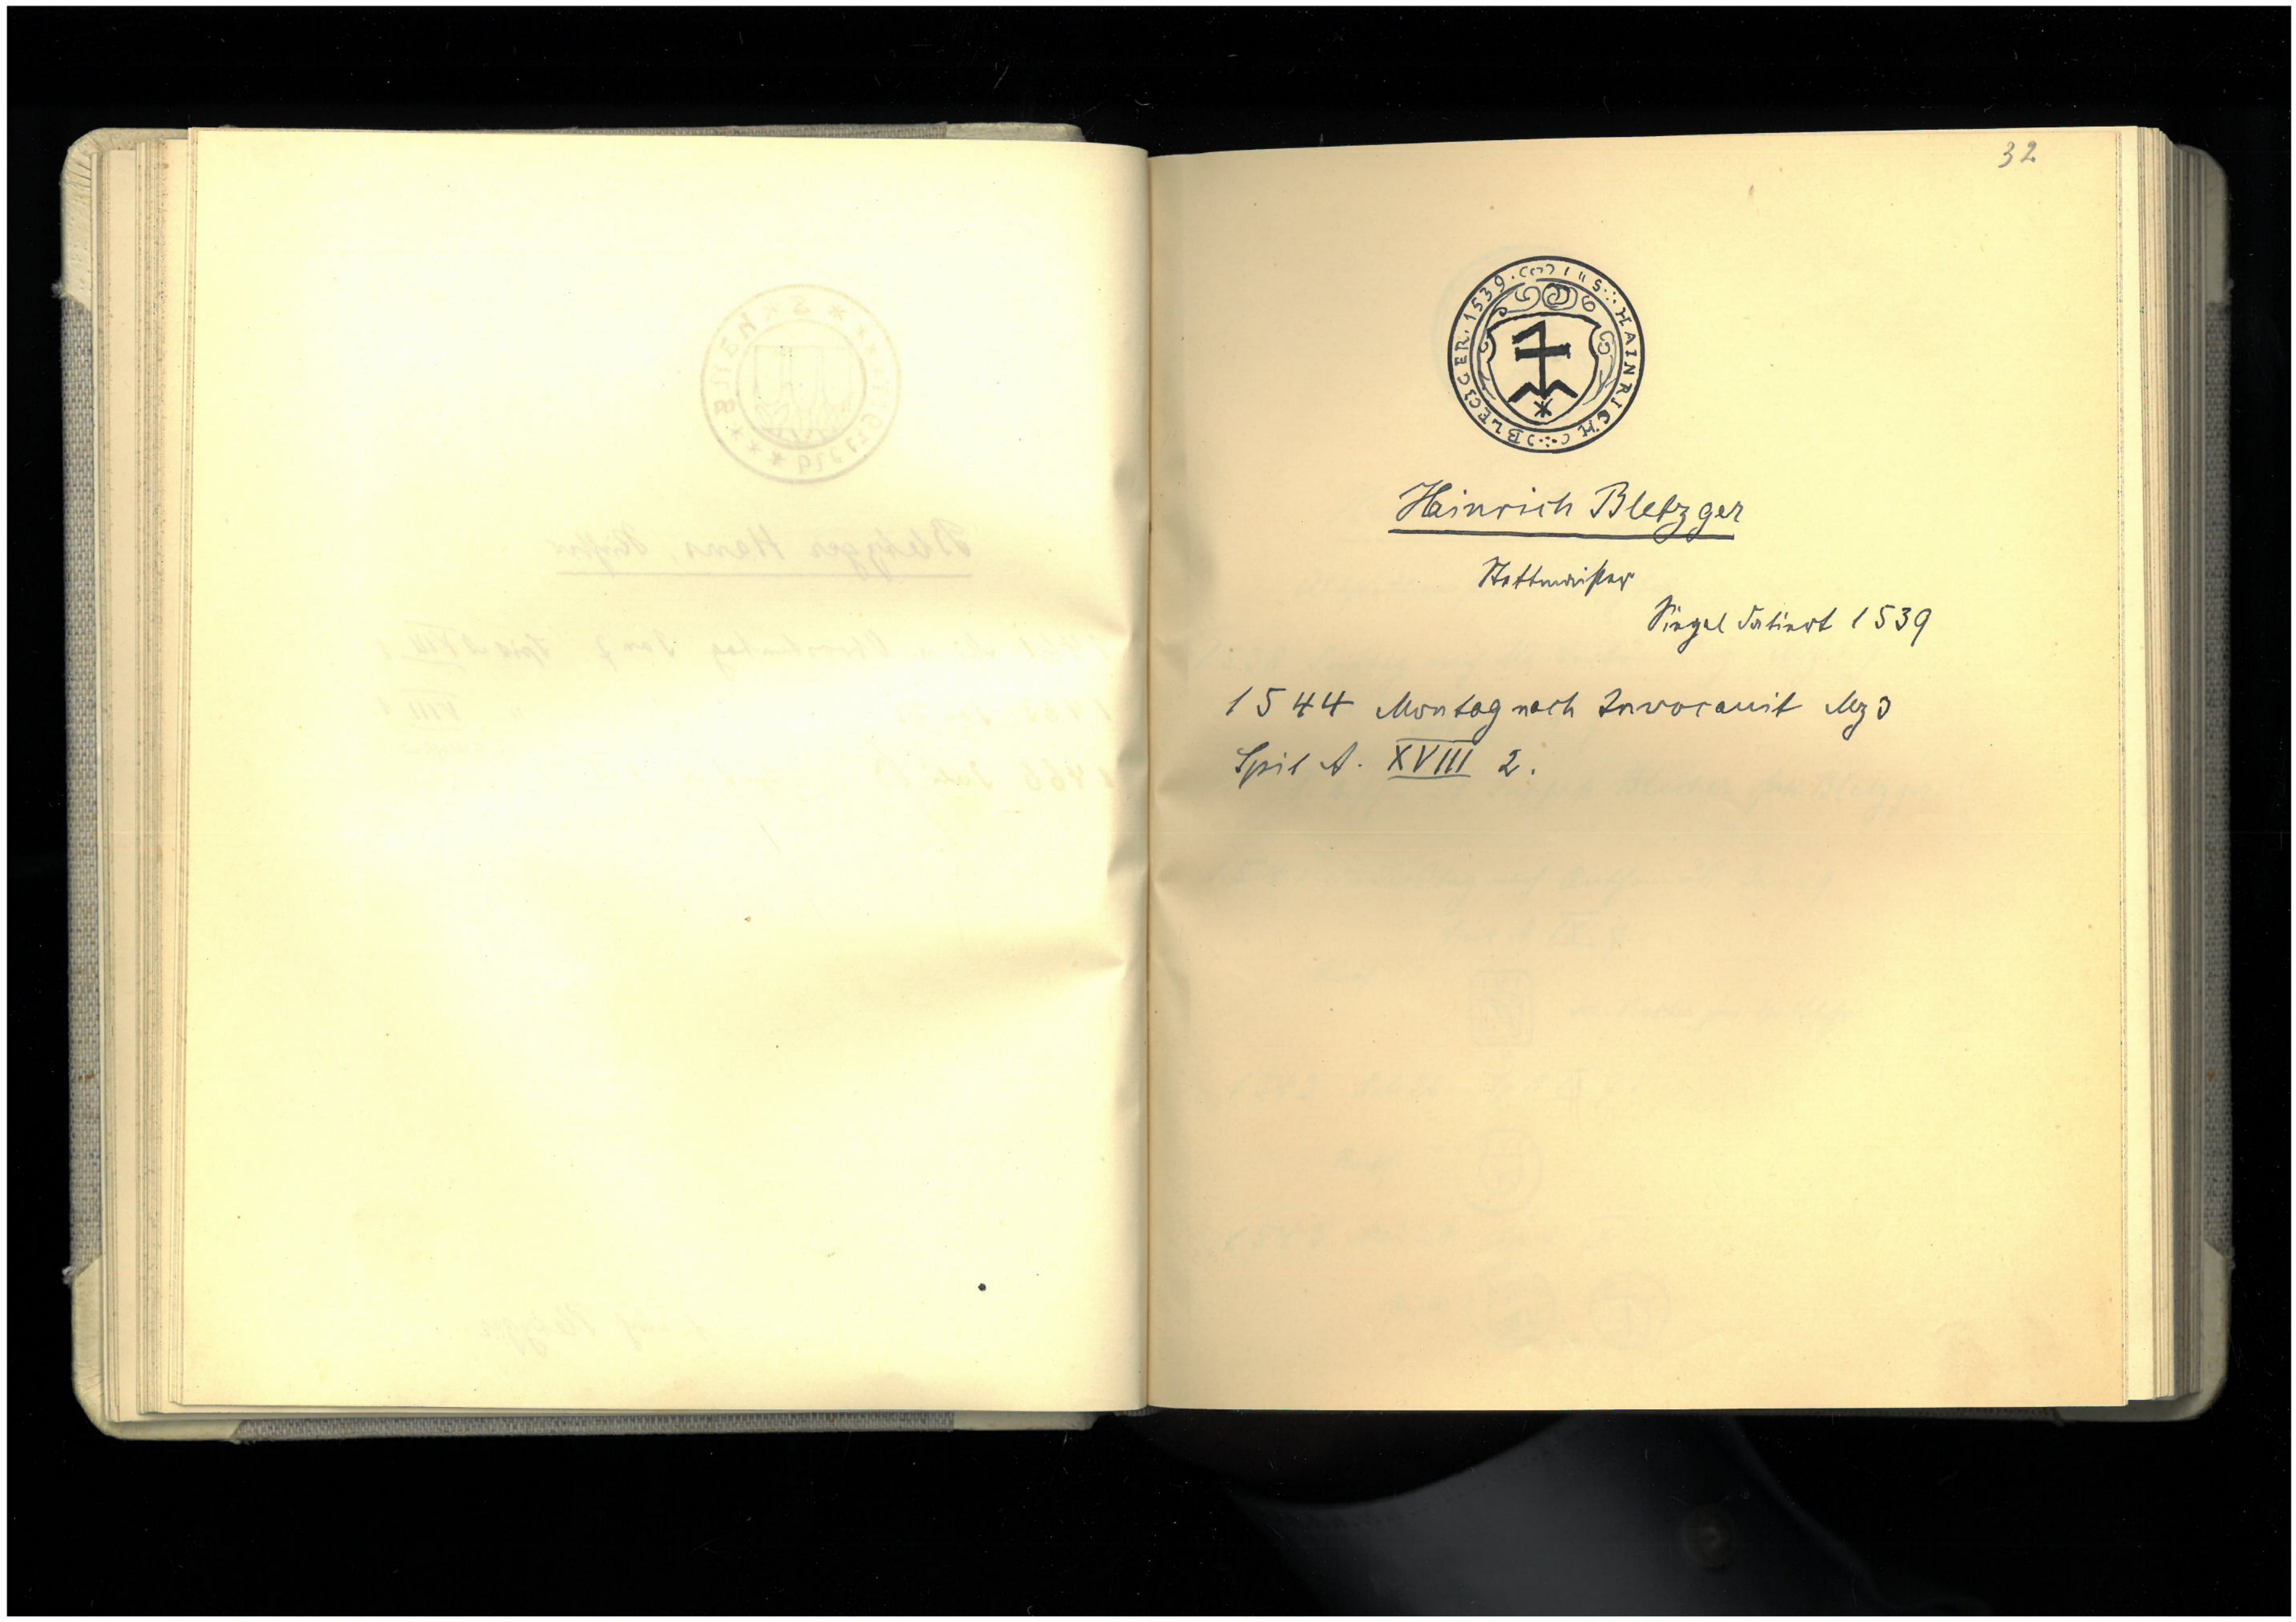 32
S HAINRICH BLECZGER 1539
Hainrich Bletzger
Stettmeister
Siegel datiert 1539
1544 Montag nach Invocavit Mz 3
Spit A. XVIII 2.